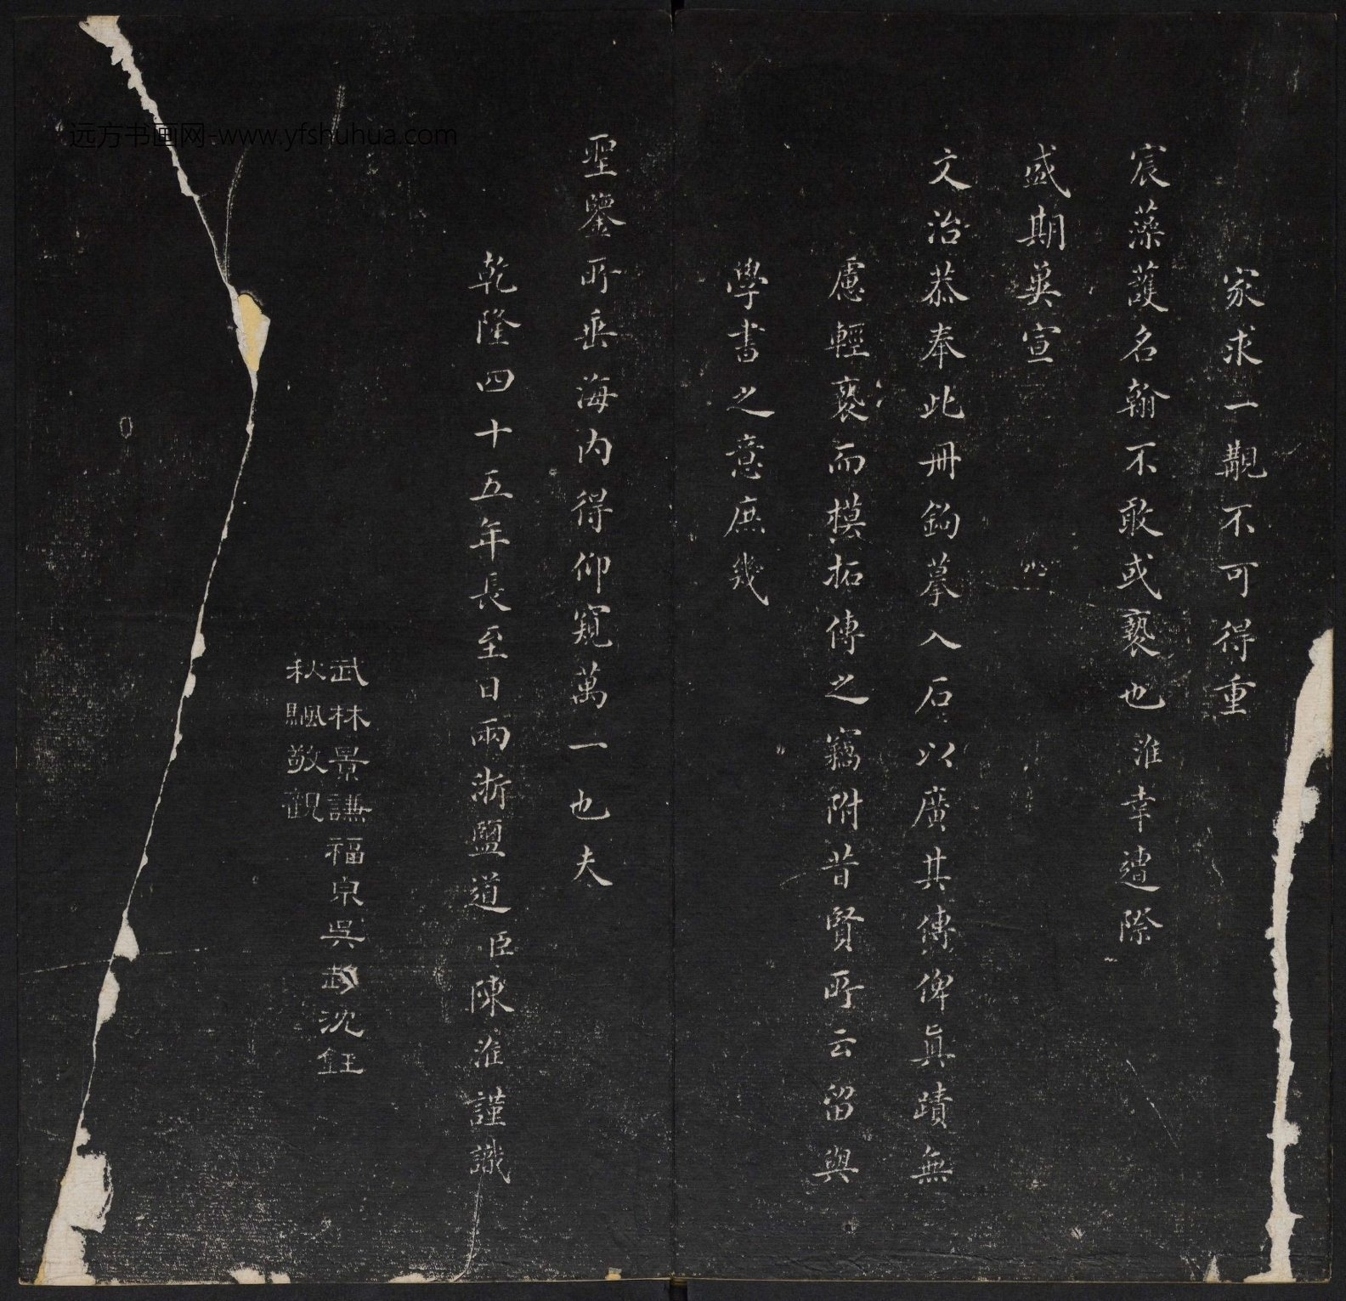 家求一覯不可得重
宸藻護名翰不敢或褻也淮幸遭際
盛期英宣
文治恭奉此冊鉤摹入石以廣其傳俾真蹟無
慮輕褻而模拓傳之竊附昔賢所云留與
學書之意庶幾
聖鑒所垂海內得仰窺萬一也夫
乾隆四十五年長至日兩浙鹽道臣陳淮謹識
武林景謙福泉吳趁沈鈺
秋颿敬觀
远方书画网-www.yfshuhua.com